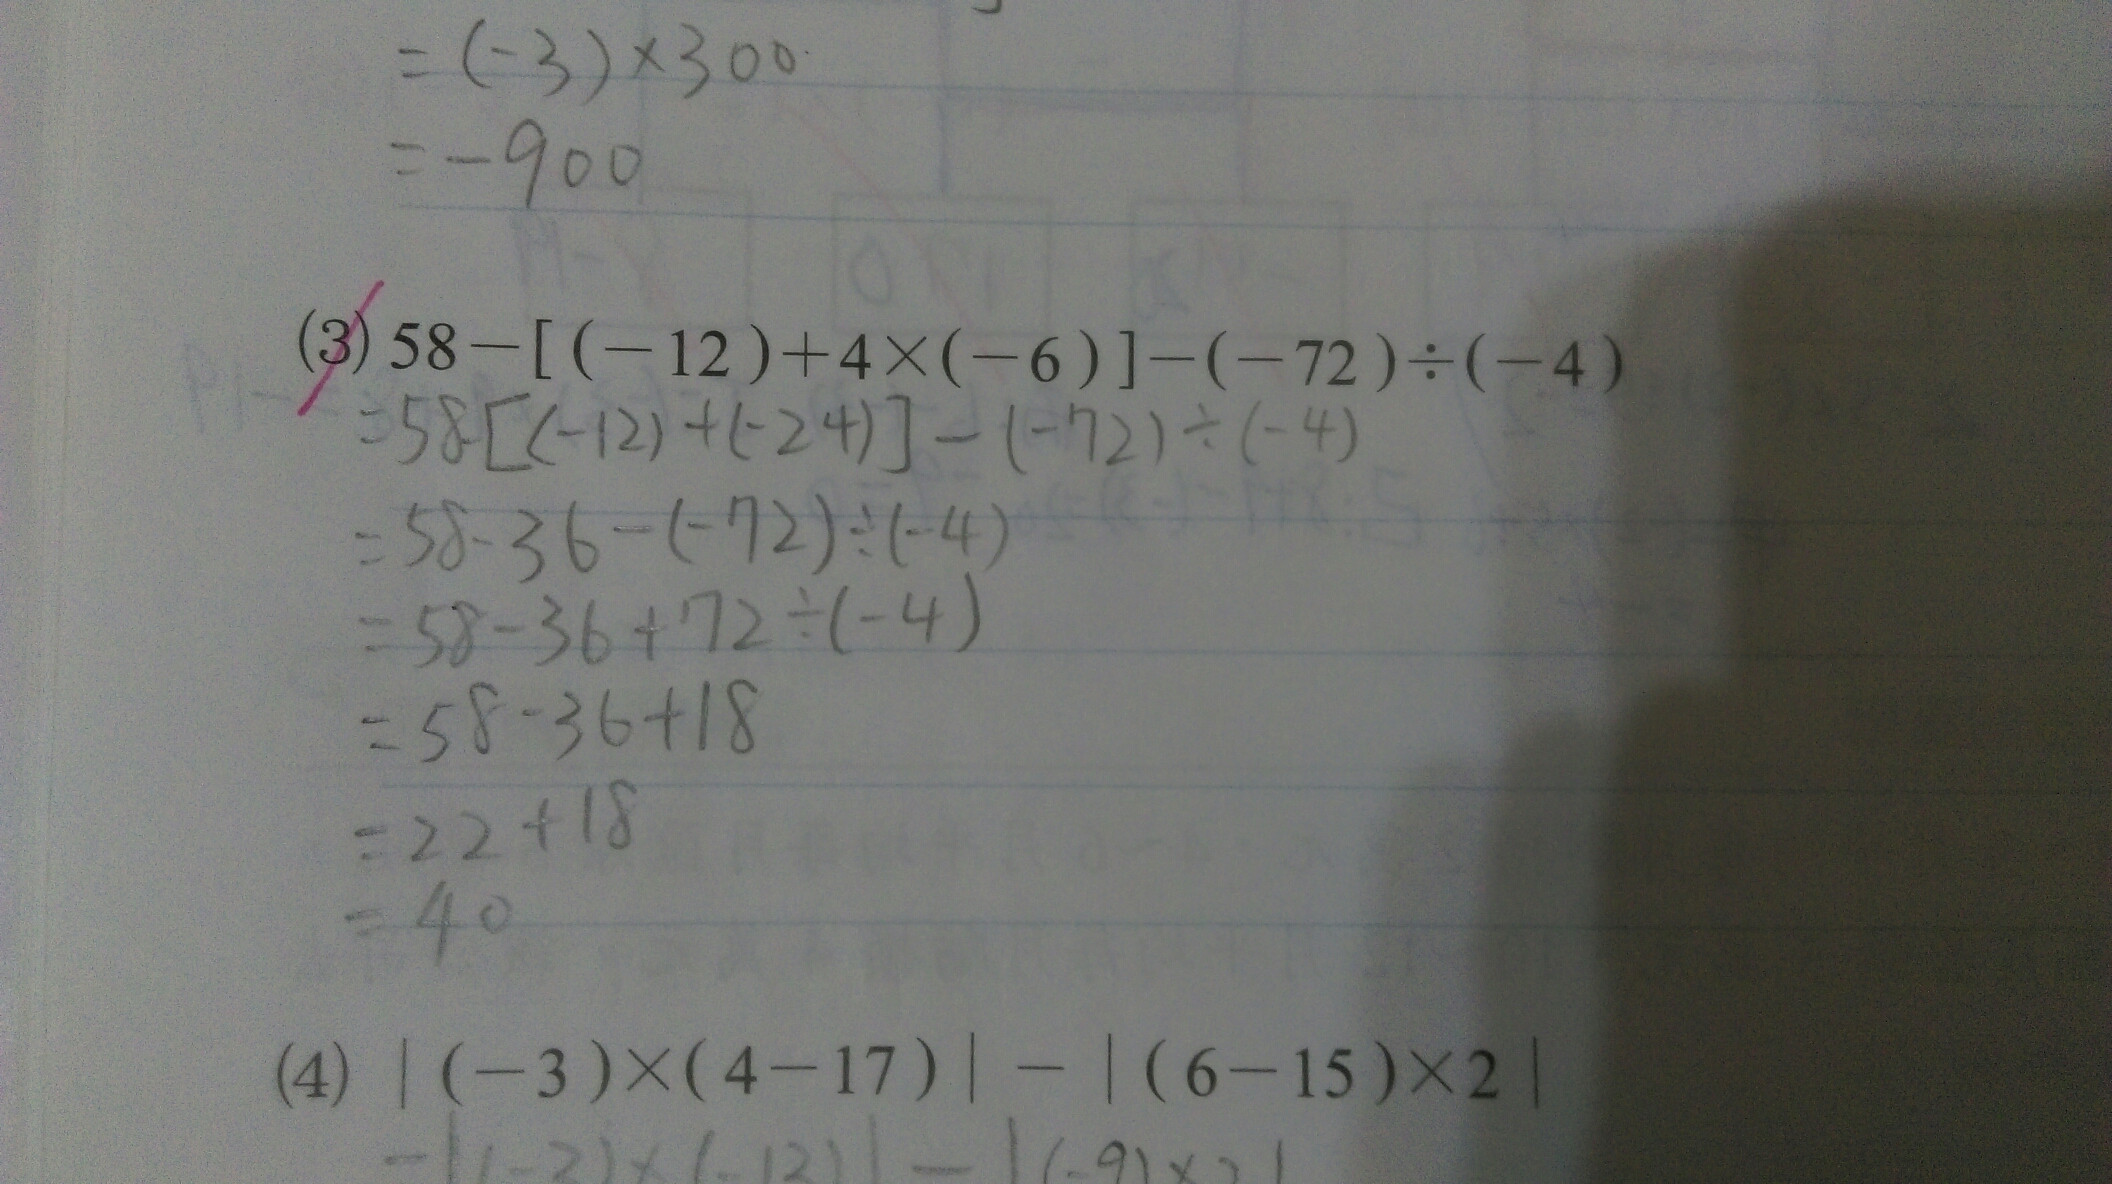 =(-3)×300
=-900
(3) 58－[(－12)＋4×(－6)]－(－72)÷(－4)
=58[(-12)+(-24)]-(-72)÷(-4)
=58-36-(-72)÷(-4)
=58-36+72÷(-4)
=58-36+18
=22+18
=40
(4) |(－3)×(4－17)|－|(6－15)×2|
=|(-3)×(-13)|-|(-9)×2|